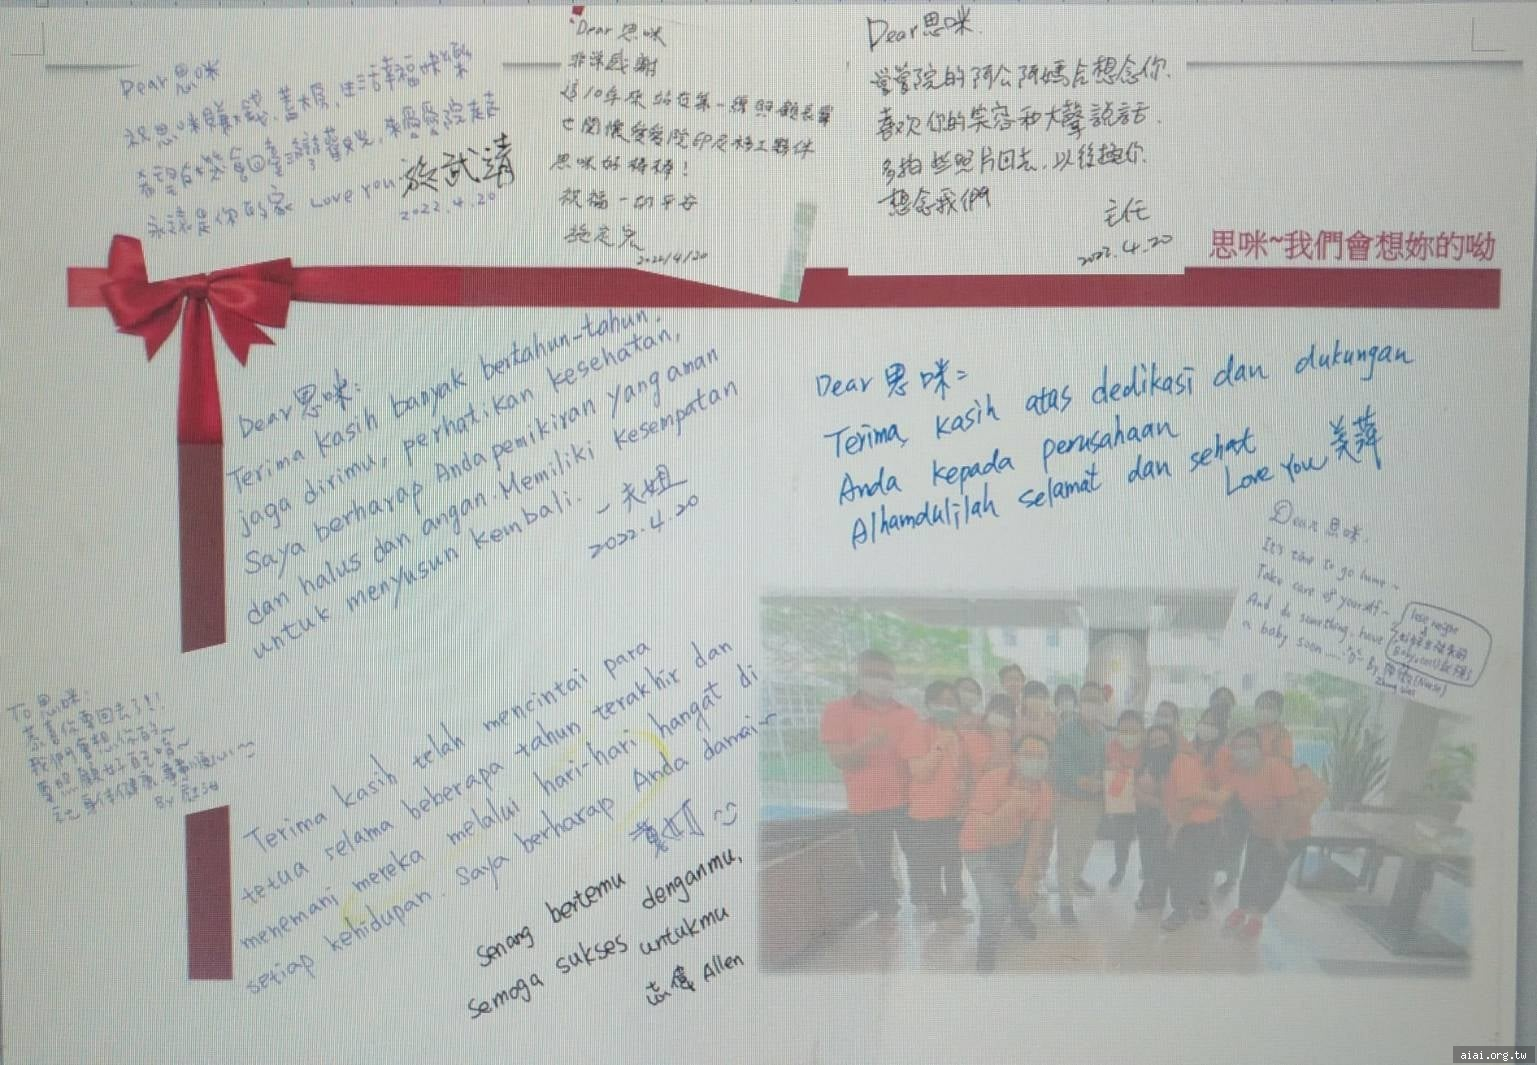 Dear 思咪
祝思咪賺大錢、蓋大房、生活幸福快樂
希望有緣會回臺灣，來愛愛院走走
永遠是你的家 Love You
2022.4.20
Dear 思咪
非常感謝
這10年來站在第一線照顧長輩
也關懷愛愛院印尼移工夥伴
思咪好棒棒！
祝福一切平安
2022/4/20
Dear思咪.
愛愛院的阿公阿媽会想念你.
喜欢你的笑容和大聲說話.
多拍些照片回去.以後換你
想念我們
主任
2022.4.20
思咪~我們會想妳的呦
Dear思咪:
Terima kasih banyak bertahun-tahun.
jaga dirimu, perhatikan kesehatan,
Saya berharap Anda pemikiran yang aman
dan halus dan angan. Memiliki kesempatan
untuk menyusun kembali.
2022.4.20
Dear 思咪=
Terima kasih atas dedikasi dan dukungan
Anda kepada perusahaan
Alhamdulilah selamat dan sehat
Love You 美萍
Dear 思咪.
It's time to go home~
Take care of yourself~
And do something, have
a baby soon....
By
(Nurse)
To 思咪:
恭喜你要回去了!!
我們會想你的~
要照顧好自己哈~
記 身体健康,事事順心
By
Terima kasih telah mencintai para
tetua selama beberapa tahun terakhir dan
menemani mereka melalui hari-hari hangat di
setiap kehidupan. Saya berharap Anda damai~
senang bertemu denganmu,
semoga sukses untukmu
志偉 Allen
aiai.org.tw